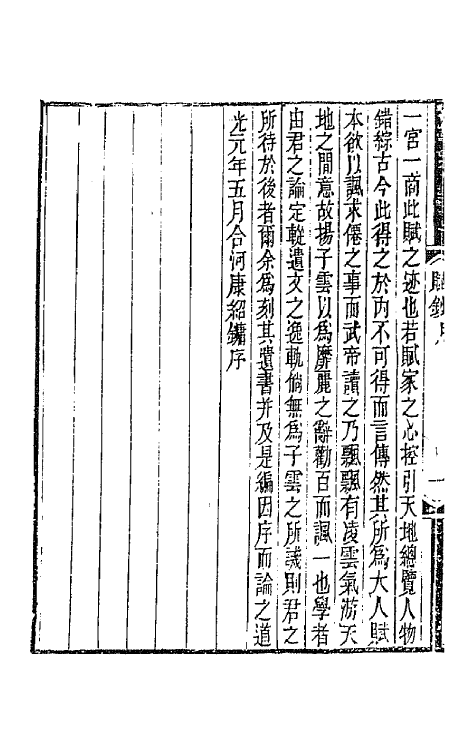 一宮一商此賦之迹也若賦家之心控引天地總覽人物
錯綜古今此得之於内不可得而言傳然其所為大人賦
本欲以諷求僊之事而武帝讀之乃飄飄有凌雲氣游天
地之閒意故揚子雲以為靡麗之辭勸百而諷一也學者
由君之論定轍遺文之逸軌倘無為子雲之所誡則君之
所待於後者爾余為刻其遺書并及是編因序而論之道
光元年五月合河康紹鏞序
賦鈔
一